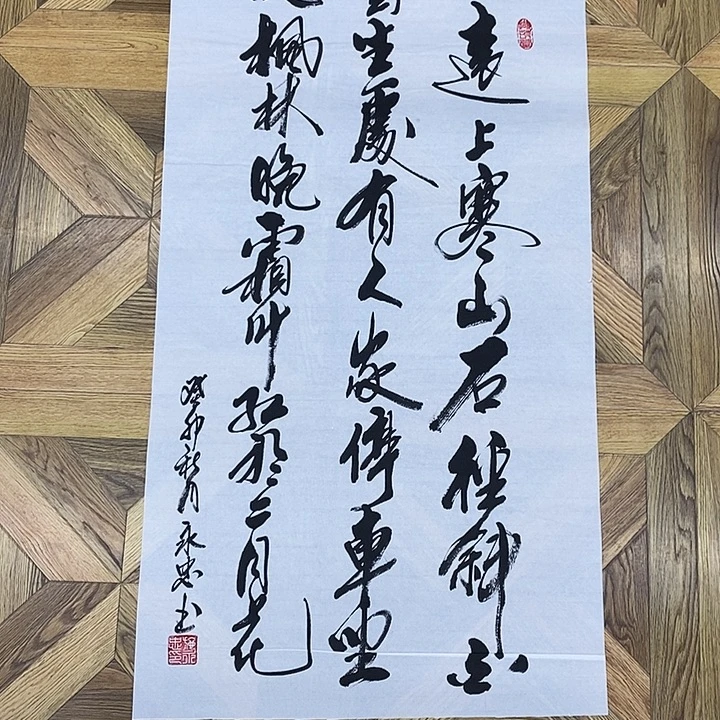 遠上寒山石徑斜白
雲生處有人家停車坐
楓林晚霜叶紅於二月花
癸卯秋月永忠书